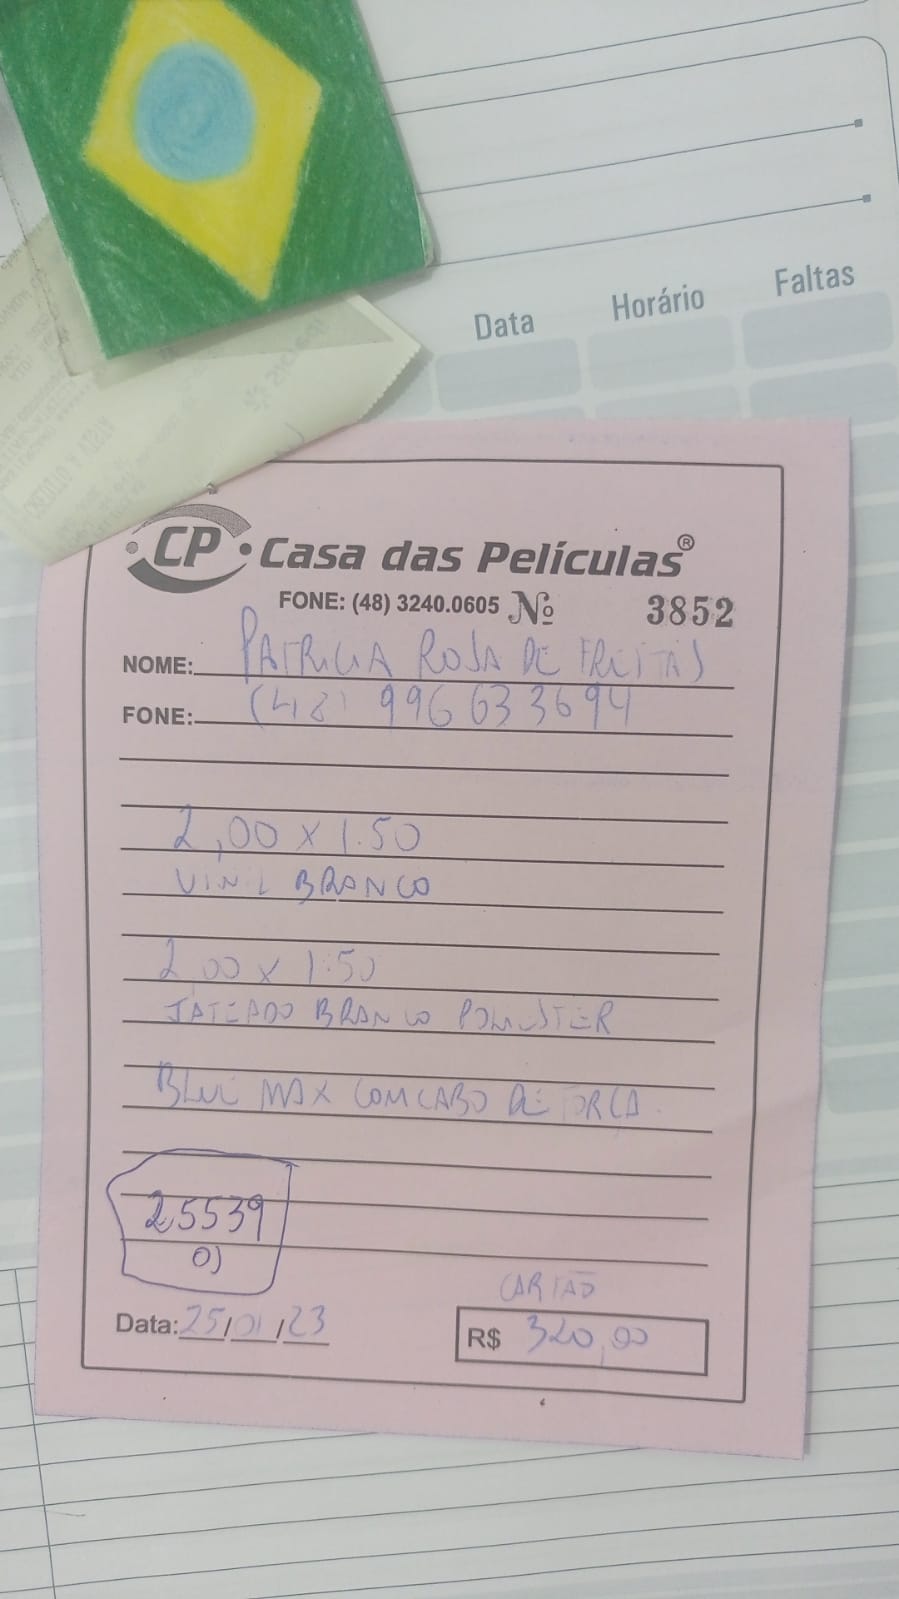 Data Horário Faltas
CP Casa das Películas®
FONE: (48) 3240.0605 Nº 3852
NOME: PATRICIA ROSA DE FREITAS
FONE: (48) 996633694
2,00 x 1.50
VINIL BRANCO
2,00 x 1.50
JATEADO BRANCO POLIESTER
BLUE MAX COM CABO DE FORÇA
25539
CARTÃO
Data: 25/01/23
R$ 320,00